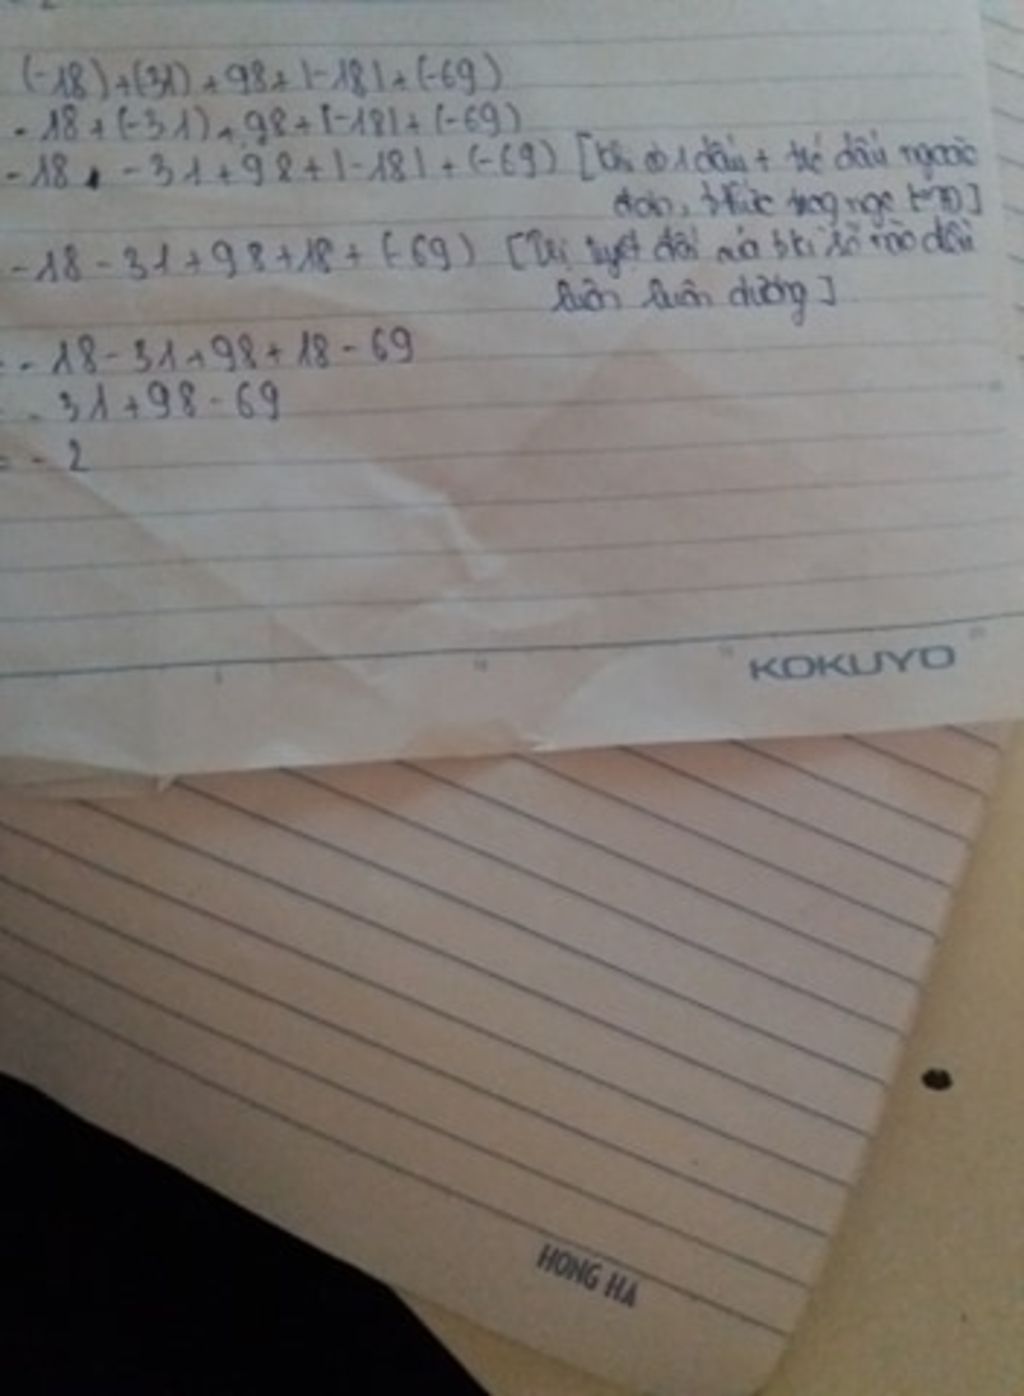 (-18)+(31)+98+|-18|+(-69)
-18+(-31)+98+|-18|+(-69)
-18 - 31+98+|-18|+(-69) [ 1 dấu + dấu ngoặc
-18-31+98+18+(-69) [ tuyệt đối số nào đều
luôn luôn dương]
= -18-31+98+18-69
-31+98-69
= -2
KOKUYO
HONG HA